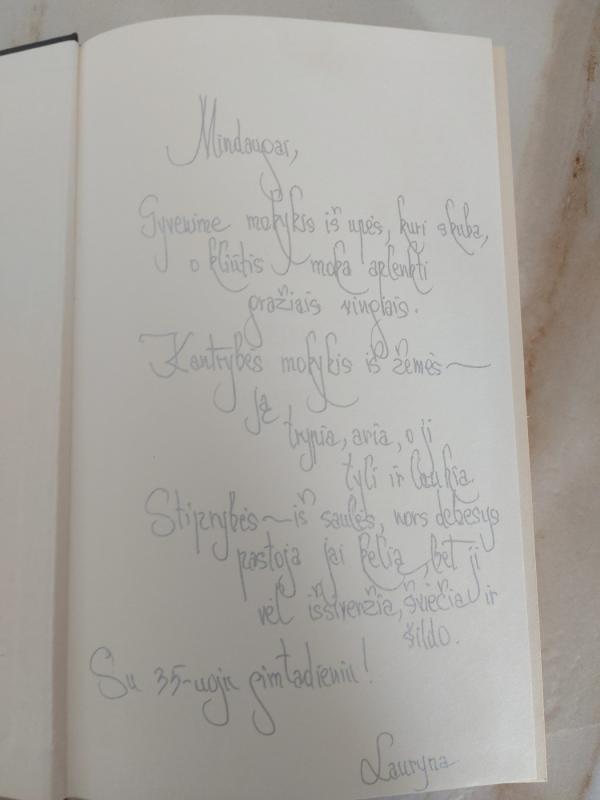 Mindaugai,
Gyvenime mokykis iš upės, kuri skuba,
o kliūtis moka aplenkti
gražiais vingiais.
Kantrybės mokykis iš žemės —
ją
trypia, aria, o ji
tyli ir laukia.
Stiprybės — iš saulės, nors debesys
pastoja jai kelią, bet ji
vėl išsiveržia, šviečia ir
šildo.
Su 35-uoju gimtadieniu!
Lauryna